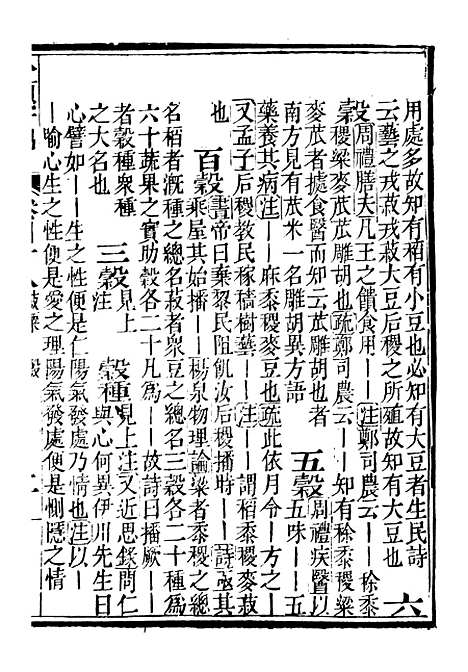 用處多故知有稻有小豆也必知有大豆者生民詩
云藝之戎菽戎菽大豆后稷之所殖故知有大豆也
六穀
周禮膳夫凡王之饋食用——注鄭司農云——稌黍
稷粱麥苽苽雕胡也疏鄭司農云——知有稌黍稷粱
麥苽者據食醫而知云苽雕胡也者
南方見有苽米一名雕胡異方語
五穀
周禮疾醫以
五味——五
藥養其病注——麻黍稷麥豆也疏此依月令——方之——
又孟子后稷教民稼穡樹藝——注——謂稻黍稷麥菽
也
百穀
書帝曰棄黎民阻飢汝后稷播時——詩亟其
乘屋其始播——楊泉物理論粱者黍稷之總
名稻者溉種之總名菽者衆豆之總名三穀各二十種爲
六十蔬果之實助穀各二十凡爲——故詩曰播厥——
者穀種衆種
之大名也
三穀
見上
注
穀種
見上注又近思錄問仁
與心何異伊川先生曰
心譬如——生之性便是仁陽氣發處乃情也注以—
—喻心生之性便是愛之理陽氣發處便是惻隱之情